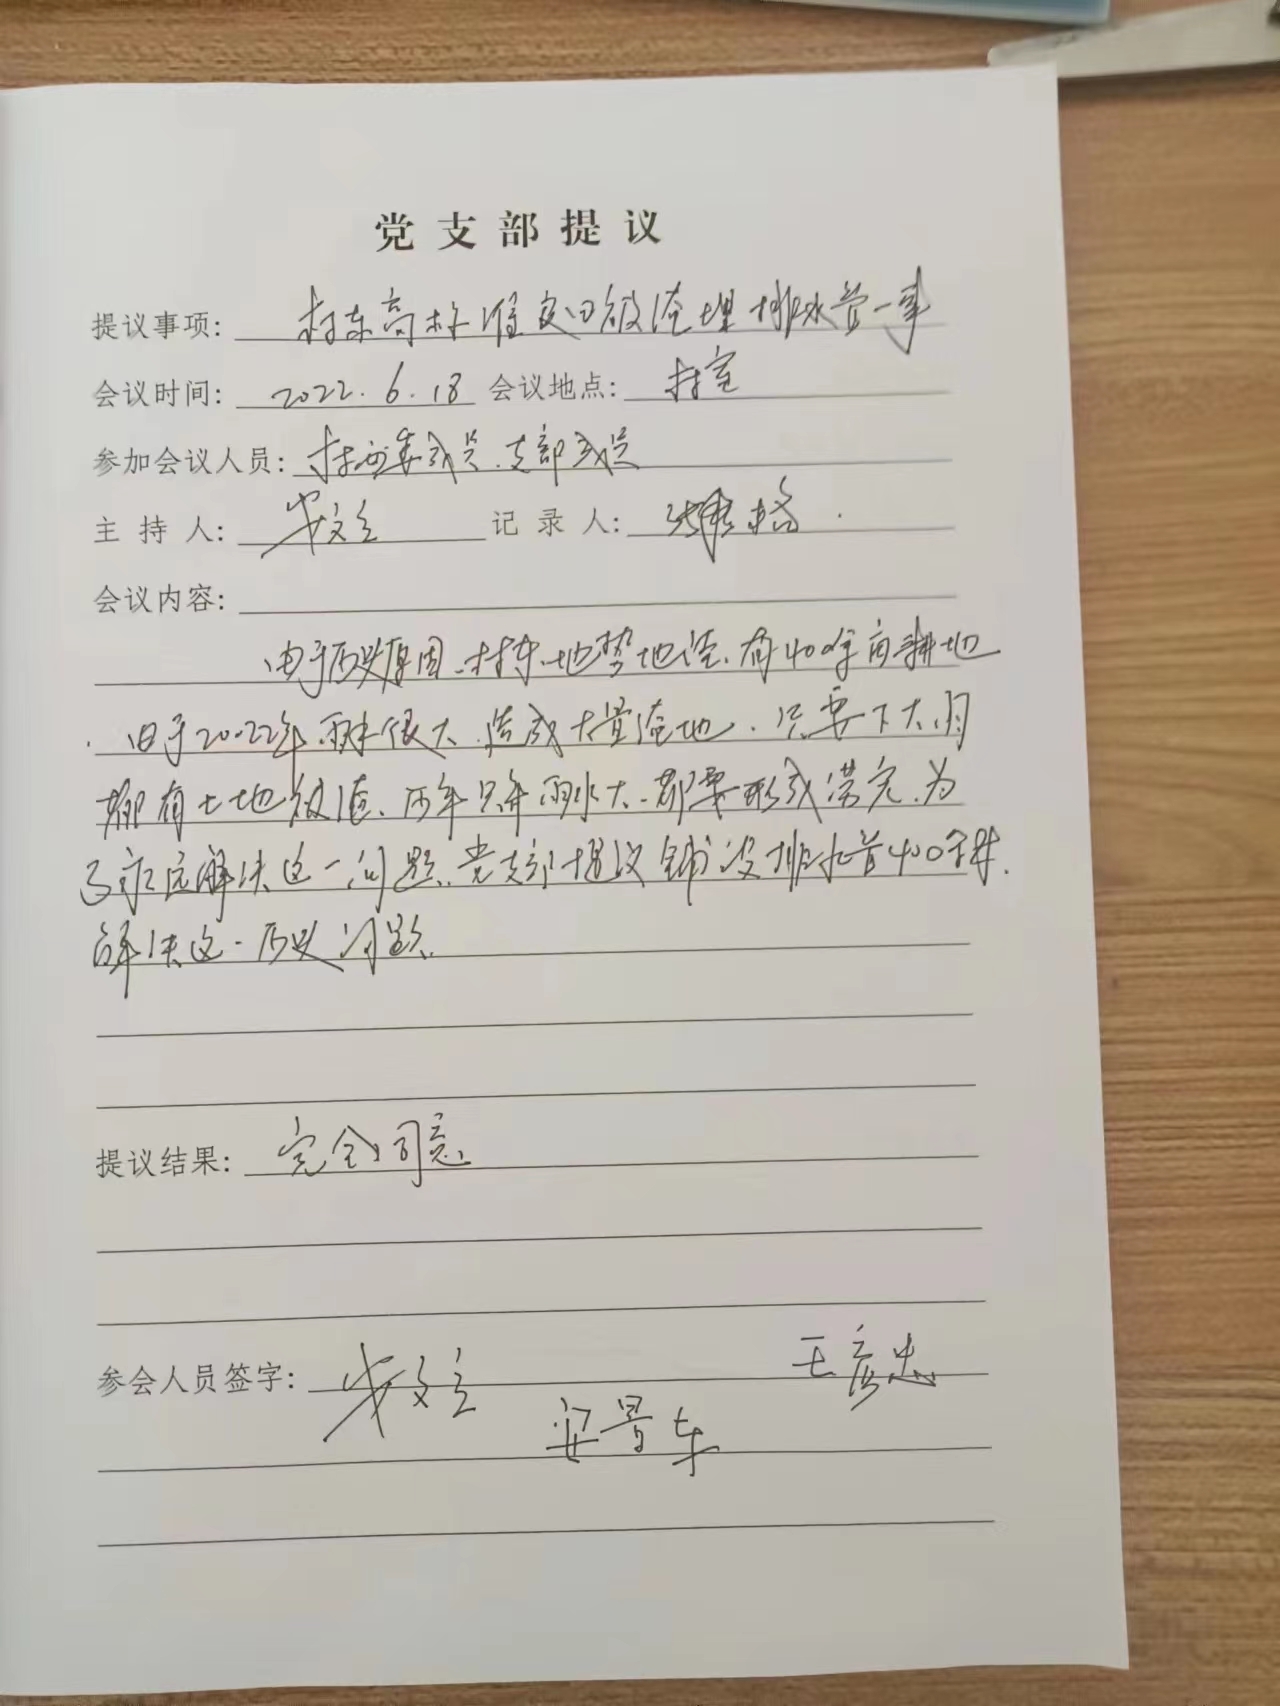 党支部提议
提议事项: 村东高标准良田被淹埋排水管一事
会议时间: 2022.6.18 会议地点: 村室
参加会议人员: 村两委成员、支部成员
主持人: 安文立 记录人:
会议内容:
由于历史原因、村东地势地洼、有400余亩耕地
由于2022年雨水很大、造成大量淹地、只要下大雨
都有土地被淹、历年只要雨水大、都要形成灾、为
了永远解决这一问题、党支部提议铺设排水管400余米.
解决这一历史问题.
提议结果: 完全同意
参会人员签字: 安文立 王彦忠
安景车